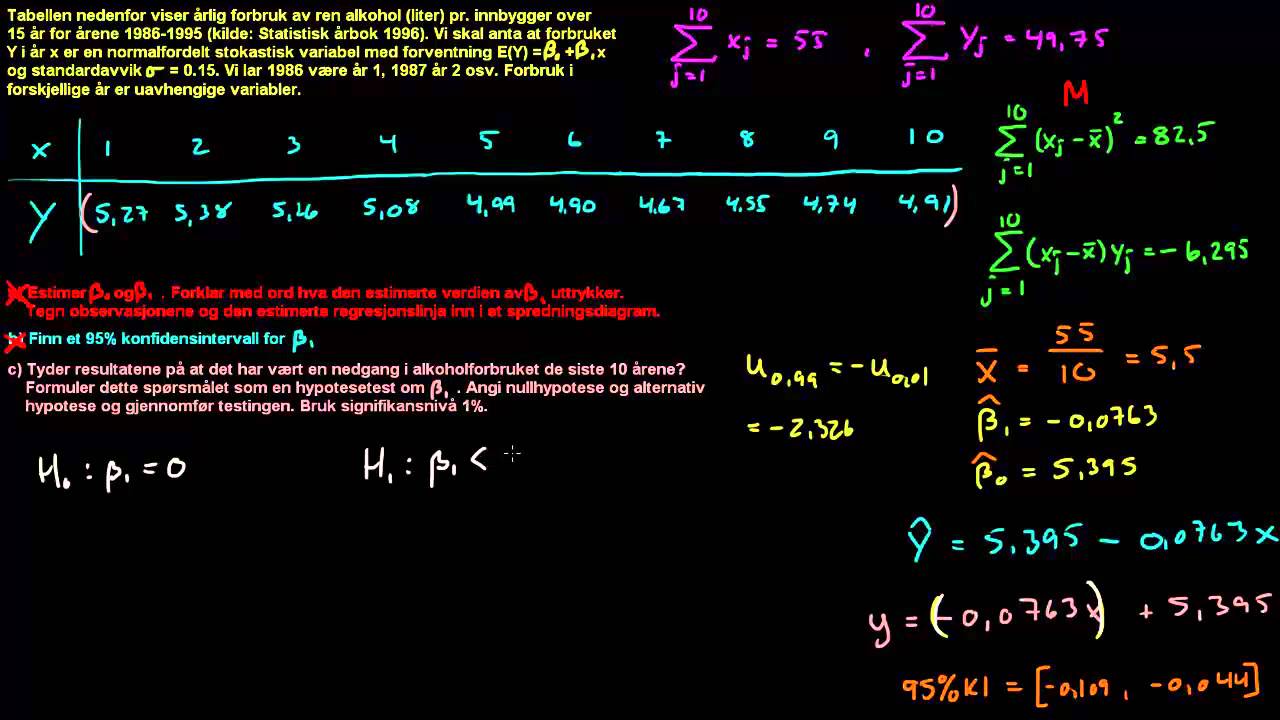 Tabellen nedenfor viser årlig forbruk av ren alkohol (liter) pr. innbygger over
15 år for årene 1986-1995 (kilde: Statistisk årbok 1996). Vi skal anta at forbruket
Y i år x er en normalfordelt stokastisk variabel med forventning E(Y) =β₀+β₁x
og standardavvik σ = 0.15. Vi lar 1986 være år 1, 1987 år 2 osv. Forbruk i
forskjellige år er uavhengige variabler.
10 ∑ j=1 xj = 55 , 10 ∑ j=1 Yj = 49,75
M
10 ∑ j=1 (xj - x̄)² = 82,5
x 1 2 3 4 5 6 7 8 9 10
Y (5,27 5,38 5,26 5,08 4,99 4,90 4,67 4,55 4,74 4,91)
10 ∑ j=1 (xj - x̄)Yj = - 6,295
a) Estimer β₀ og β₁ . Forklar med ord hva den estimerte verdien av β₁ uttrykker.
Tegn observasjonene og den estimerte regresjonslinja inn i et spredningsdiagram.
b) Finn et 95% konfidensintervall for β₁
c) Tyder resultatene på at det har vært en nedgang i alkoholforbruket de siste 10 årene?
Formuler dette spørsmålet som en hypotesetest om β₁ . Angi nullhypotese og alternativ
hypotese og gjennomfør testingen. Bruk signifikansnivå 1%.
u0,99 = - u0,01
= - 2,326
x̄ = 55/10 = 5,5
β̂₁ = - 0,0763
β̂₀ = 5,395
H₀ : β₁ = 0 H₁ : β₁ <
Ŷ = 5,395 - 0,0763x
y = (-0,0763x) + 5,395
95% KI = [-0,109 , -0,044]